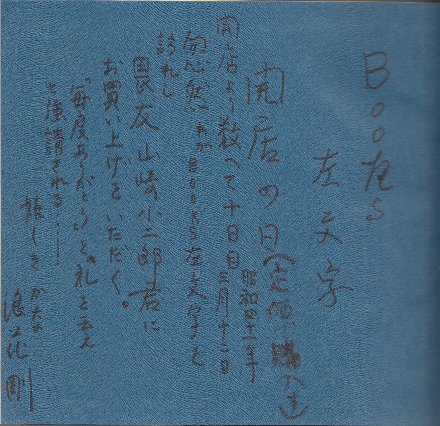 BooKS
左文字
開店の日(定価購入
昭和四十一年
三月十二日
開店より数へて十日目
忽然 わがBOOKS左文字を
訪れし
畏友 山崎小二郎君に
お買い上げをいただく。
「毎度ありがとう」と、礼を云え
と強請される――!
嬉しき かな
浪花剛